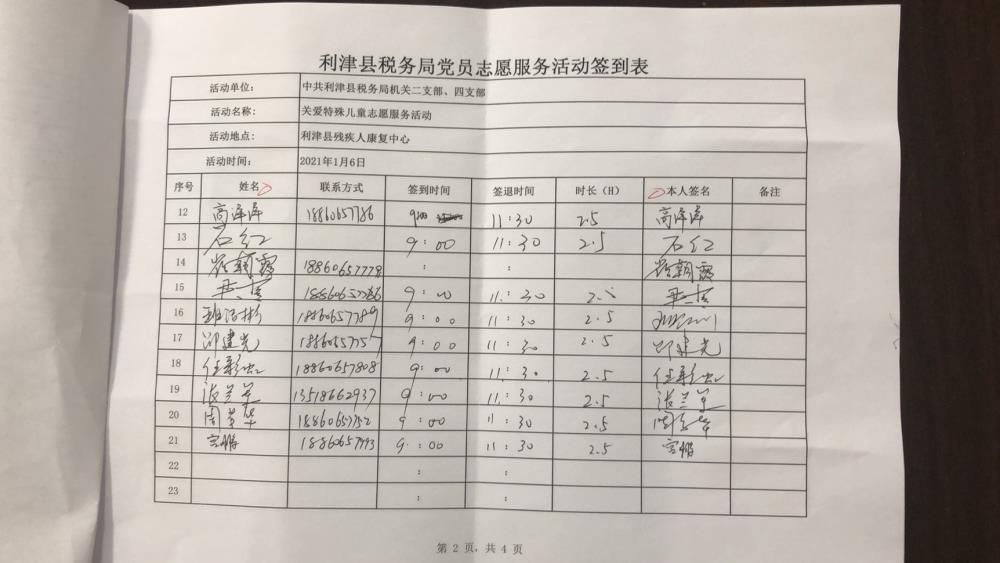 利津县税务局党员志愿服务活动签到表
活动单位: 中共利津县税务局机关二支部、四支部
活动名称: 关爱特殊儿童志愿服务活动
活动地点: 利津县残疾人康复中心
活动时间: 2021年1月6日
序号 姓名 联系方式 签到时间 签退时间 时长（H） 本人签名 备注
12 高泽泽 18860657786 9:00 11:30 2.5 高泽泽
13 石红 9:00 11:30 2.5 石红
14 崔朝露 18860657778 : : 崔朝露
15 9:00 11:30 2.5
16 18860657789 9:00 11:30 2.5
17 邱建光 18860657757 9:00 11:30 2.5 邱建光
18 任彩虹 18860657808 9:00 11:30 2.5 任彩虹
19 13518662937 9:00 11:30 2.5
20 18860657752 9:00 11:30 2.5
21 宫鹏 18860657793 9:00 11:30 2.5 宫鹏
22 : :
23 : :
第 2 页，共 4 页